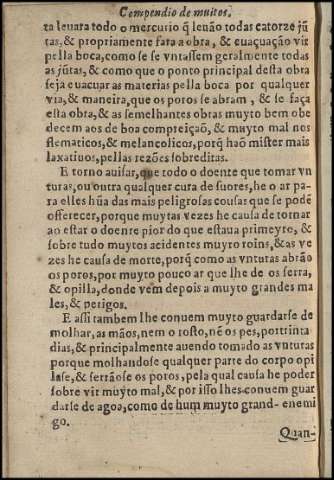 Compendio de muitos.
ta leuara todo o mercurio q̃ leuão todas catorze jũ
tas, & propriamente fara a obra, & euacuação vir
pella boca, como se se vntassem geralmente todas
as jũtas, & como que o ponto principal desta obra
seja euacuar as materias pella boca por qualquer
via, & maneira, que os poros se abram, & se faça
esta obra, & as semelhantes obras muyto bem obe
decem aos de boa compreiçaõ, & muyto mal nos
flematicos, & melancolicos, porq̃ haõ mister mais
laxatiuos, pellas rezões sobreditas.
E torno auisar, que todo o doente que tomar vn
turas, ou outra qualquer cura de suores, he o ar pa
ra elles hũa das mais peligrosas cousas que se podẽ
offerecer, porque muytas vezes he causa de tornar
ao estar o doente pior do que estaua primeyro, &
sobre tudo muytos acidentes muyro roins, & as ve
zes he causa de morte, porq̃ como as vnturas abrão
os poros, por muyto pouco ar que lhe de os serra,
& opilla, donde vem depois a muyto grandes ma
les, & perigos.
E assi tambem lhe conuem muyto guardarse de
molhar, as mãos, nem o rosto, nẽ os pes, por trinta
dias, & principalmente auendo tomado as vnturas
porque molhandose qualquer parte do corpo opi
lase, & serrãose os poros, pela qual causa he poder
sobre vir muyto mal, & por isso lhes conuem guar
darse de agoa, como de hum muyto grand- enemi
go.
Quan-